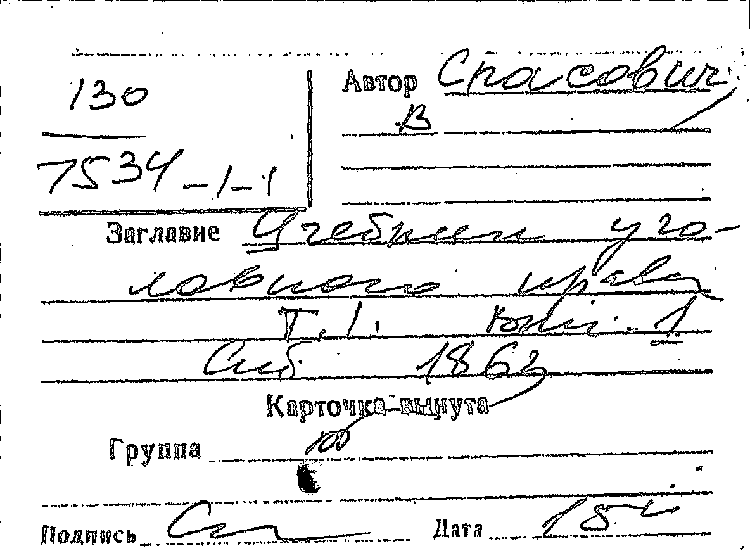 130
7534-1-1
Автор Спасович
В
Заглавие Учебник уго-
ловного права
Т.1. Книг. 1
Спб 1863
Карточка вынута
Группа
Подпись
Дата